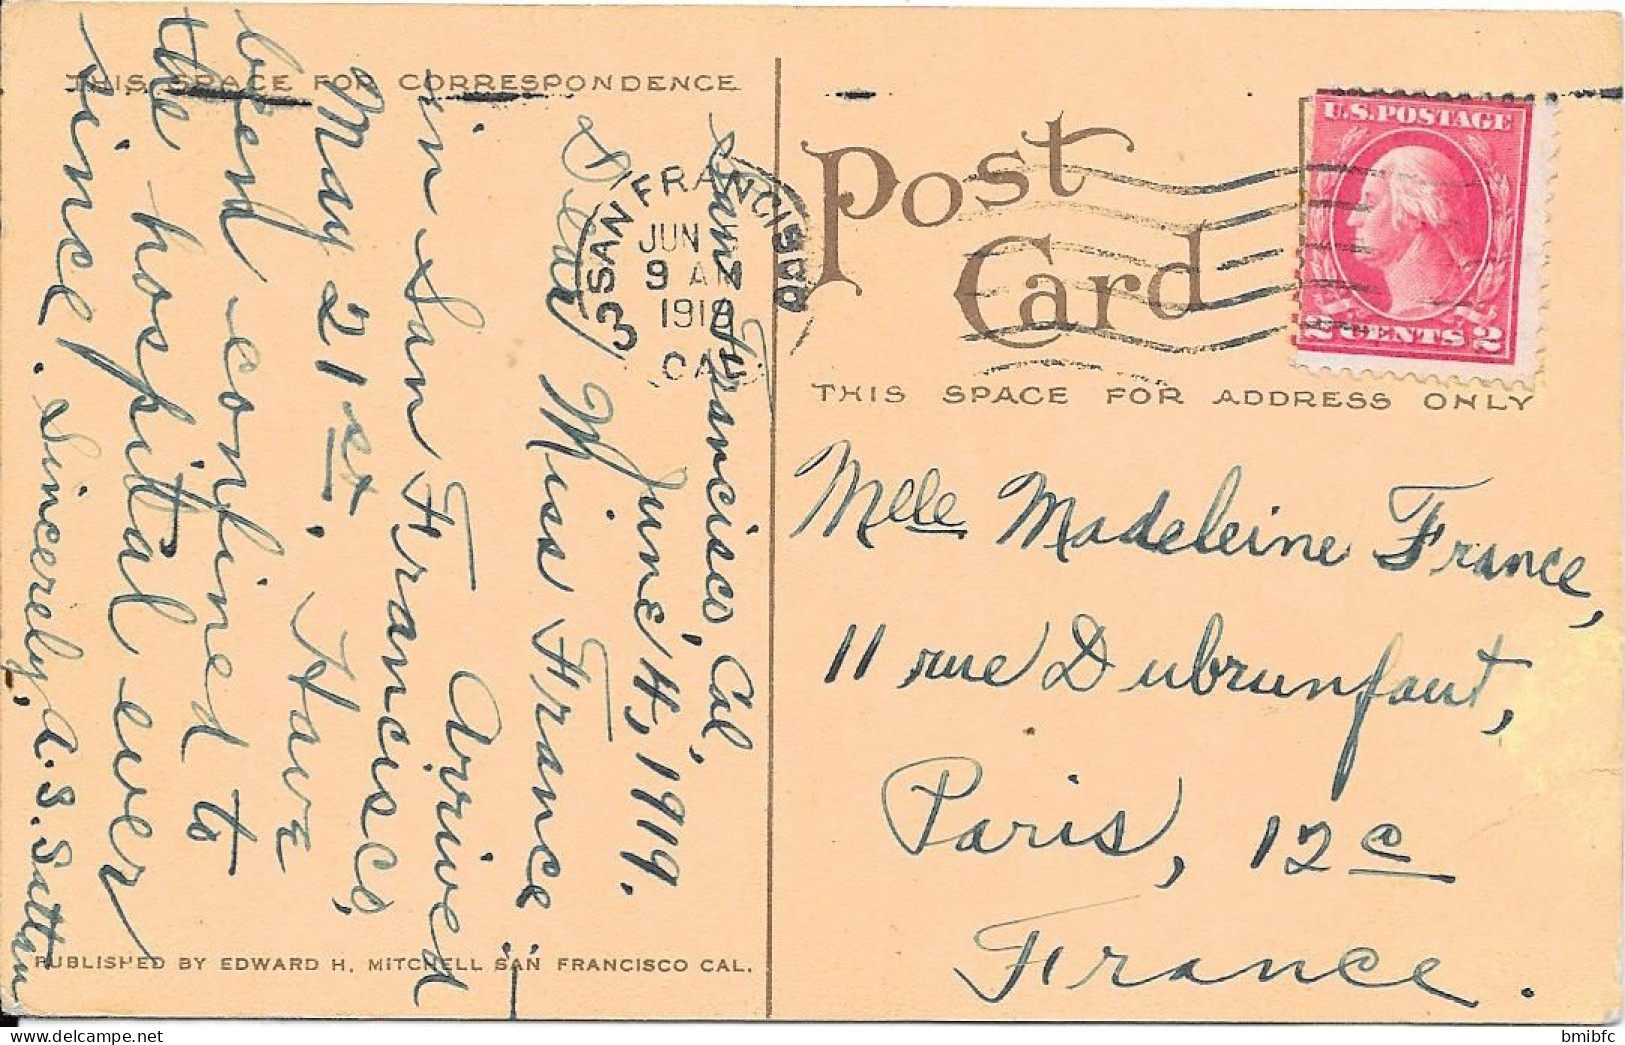 THIS SPACE FOR CORRESPONDENCE
San Francisco, Cal,
June 4, 1919.
Dear Miss France:
Arrived
in San Francisco,
May 21st. Have
been confined to
the hospital ever
since. Sincerely,
PUBLISHED BY EDWARD H. MITCHELL SAN FRANCISCO CAL.
SAN FRANCISCO
JUN
9 AM
CAL
3
Post
Card
U.S. POSTAGE
2 CENTS 2
THIS SPACE FOR ADDRESS ONLY
Melle Madeleine France,
11 rue Dubrunfaut,
Paris, 12e
France.
bmibfc